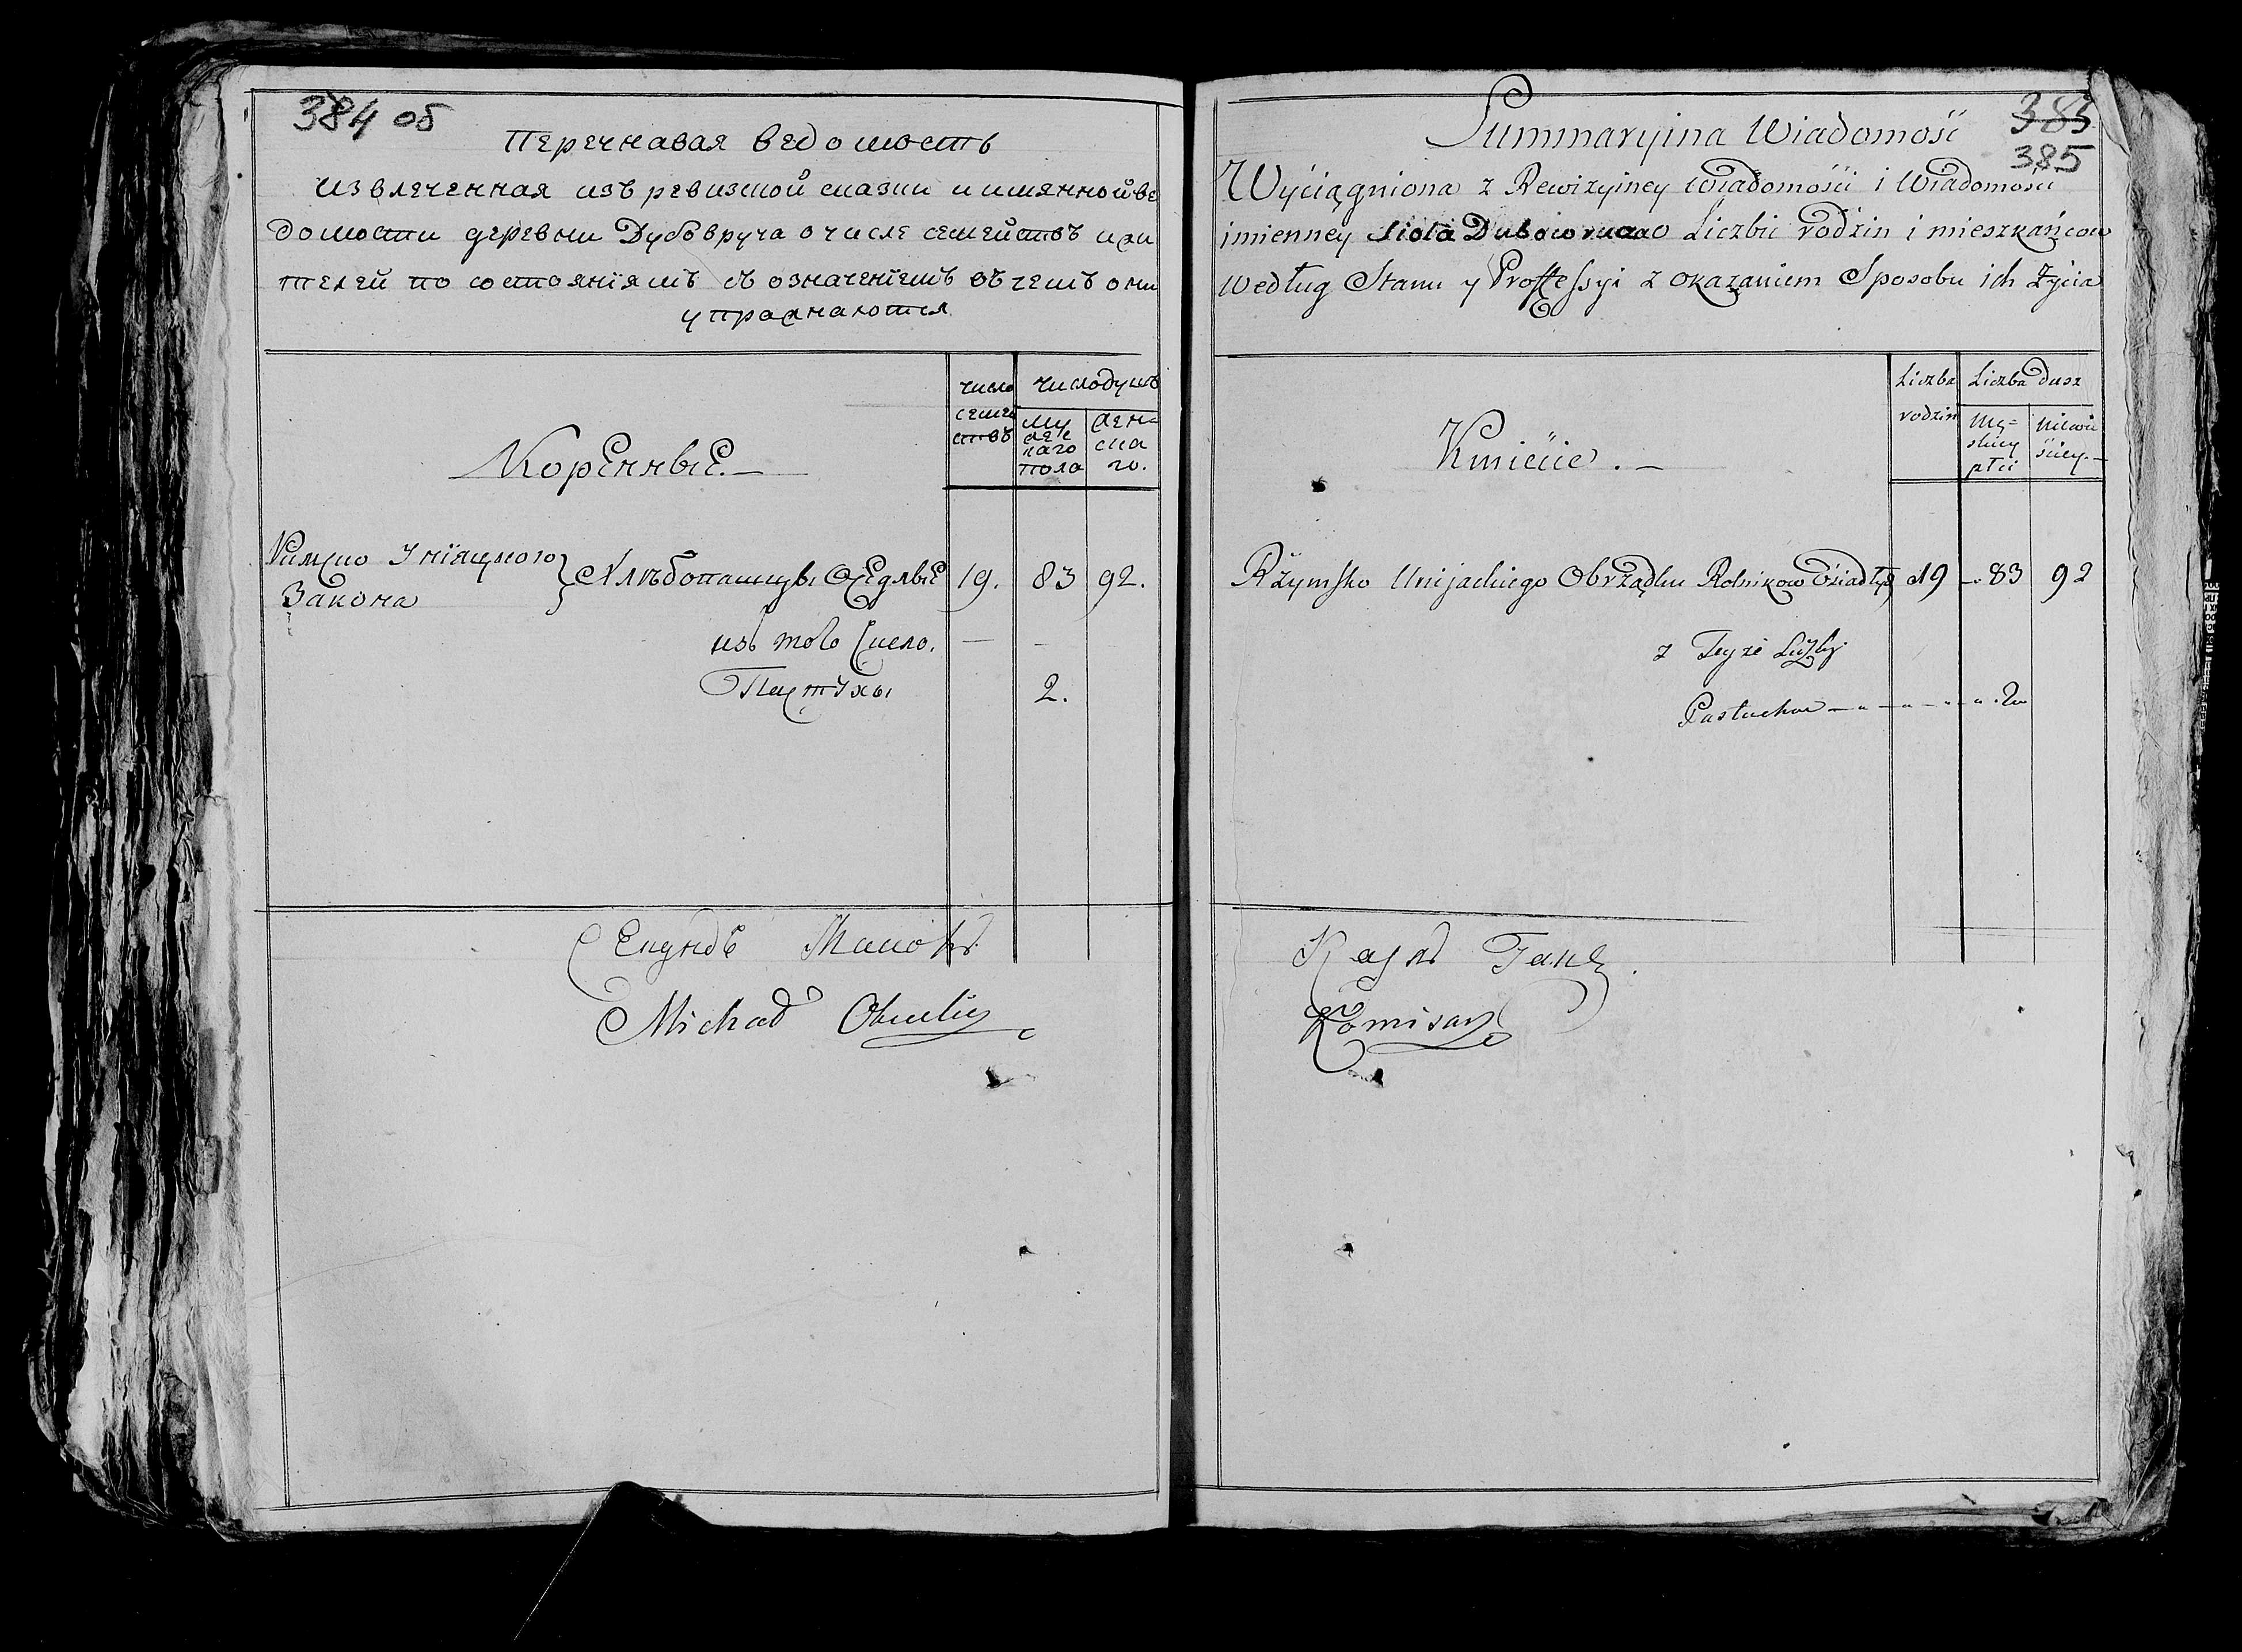 384 об
Перечнавая ведомость
извлеченная изъ ревизской сказки и имянной ве
домости деревни Дубовруча о числе семействъ и жи
телей по состоянїямъ съ означенїемъ въ чемъ они
упражнаются
число
семей
ствъ
число душъ
му
жес
каго
пола
жен=
ска
го.
Коренные.—
Римско Унїяцкого
Закона
Хлѣбопашцы Оседлые 19. 83 92.
изъ того Числа. — –
Пастухы 2.
Секундъ
Michał
383
385
Summaryina Wiadomość
Wyciągniona z Rewizyiney Wiadomości i Wiadomości
imienney Sioła Dubowrucza o Liczbie rodzin i mieszkańcow
według Stanu y Proffessyi z okazaniem Sposobu ich Życia
Liczba
rodzin
Liczba dusz
Mę=
skiey
płci
niewie
śćiey.—
Kmiecie.—
Rzymsko Unijackiego Obrządku Rolnikow Osiadłych 19 – 83 92
z Teyże Liczby
Pastuchow — „ — „ — „ — „ . 2
Komisarz